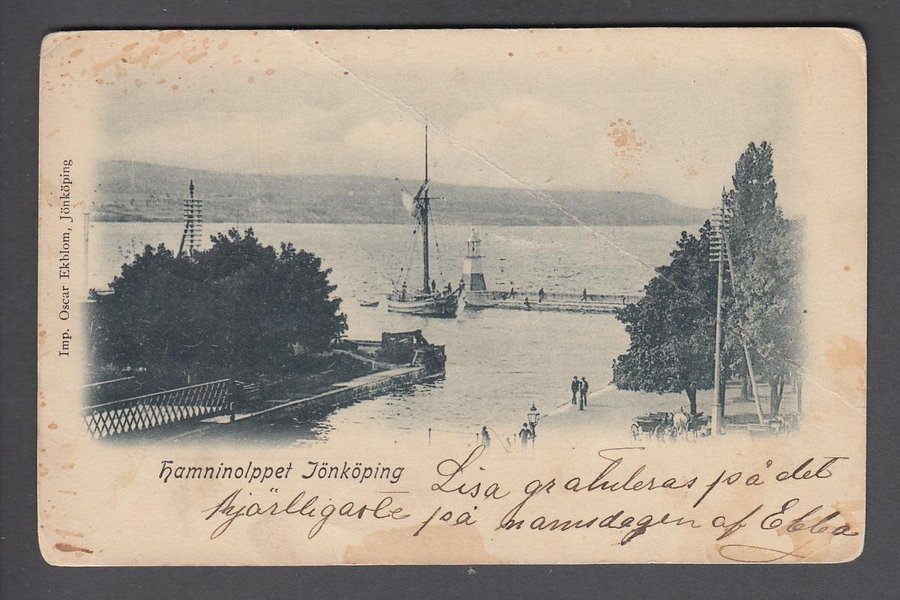 Imp. Oscar Ekblom, Jönköping
Hamninolppet Jönköping
Lisa gratuleras på det
hjärtligaste på namsdagen af Ebba